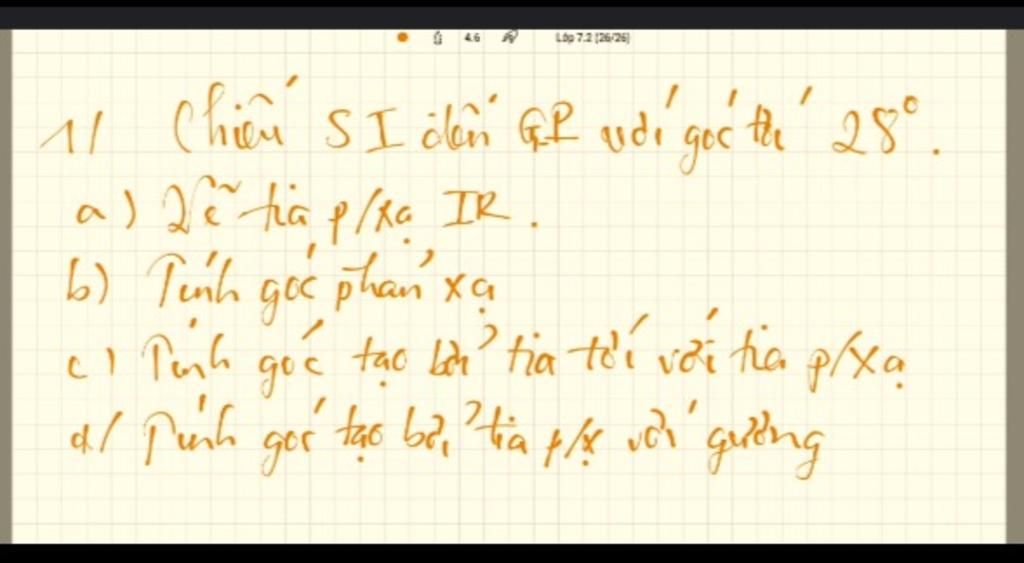 4.6 Lớp 7.2 (26/26)
1/ Chiếu SI đến GP với góc tới 28°.
a) Vẽ tia p/xạ IR.
b) Tính góc phản xạ
c) Tính góc tạo bởi tia tới với tia p/xạ
d/ Tính góc tạo bởi tia p/x với gương